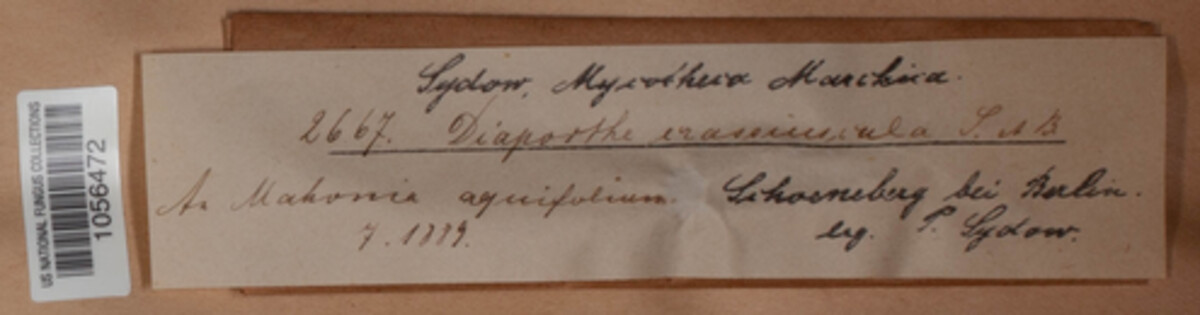 Sydow, Mycotheca Marchica.
2667. Diaporthe crassiuscula S. et B
An Mahonia aquifolium. Schoeneberg bei Berlin.
7. 1889. leg. P. Sydow.
US NATIONAL FUNGUS COLLECTIONS
1056472